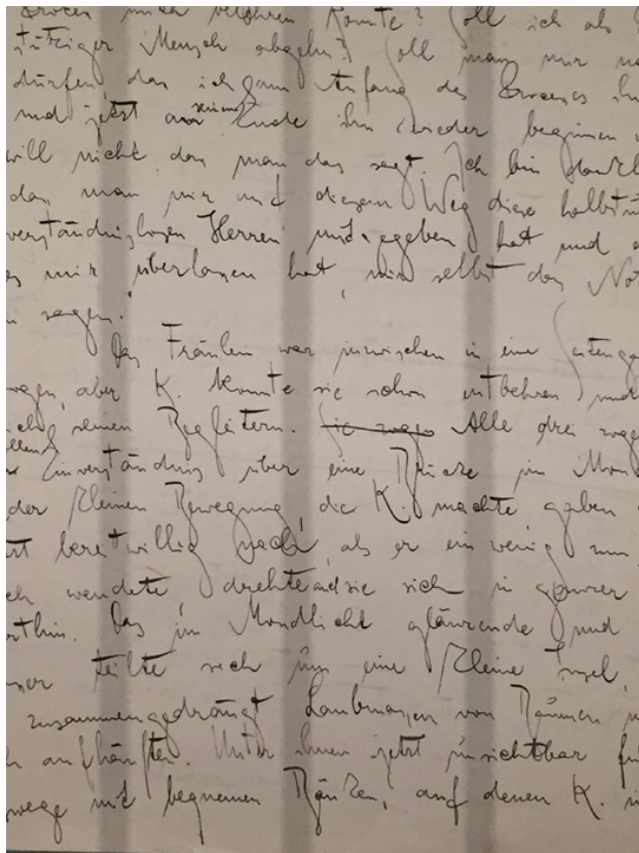 Prozess mich belehren konnte? Soll ich als
stütziger Mensch abgehn? Soll man mir
dürfen, dass ich am Anfang des Processes ihn
und jetzt an seinem Ende ihn wieder beginnen
will nicht dass man das sagt. Ich bin
dass man mir auf diesem Weg diese halbstu
verständnislosen Herren mitgegeben hat und
es mir überlassen hat, mir selbst das Not
sagen.
Das Fräulein war inzwischen in eine Seitenga
bogen, aber K. konnte sie schon entbehren und
seinen Begleitern. Sie zogen Alle drei zogen
Einverständnis über eine Brücke im Mon
der kleinen Bewegung, die K. machte gaben
bereitwillig nach, als er ein wenig zum
wendete, drehten auch sie sich in ganzer
orthin. Das im Mondlicht glänzende und
sser teilte sich um eine kleine Insel,
zusammengedrängt Laubmassen von Bäumen
aufhäuften. Unter ihnen jetzt unsichtbar
wege mit bequemen Bänken, auf denen K.